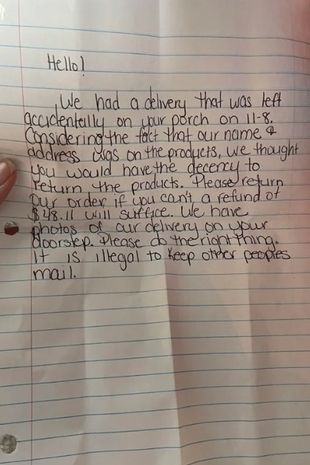 Hello!
We had a delivery that was left
accidentelly on your porch on 11-8.
Considering the fact that our name &
address was on the products, we thought
you would have the decency to
return the products. Please return
our order if you can't, a refund of
$48.11 will suffice. We have
photos of our delivery on your
doorstep. Please do the right thing.
It is illegal to keep other peoples
mail.